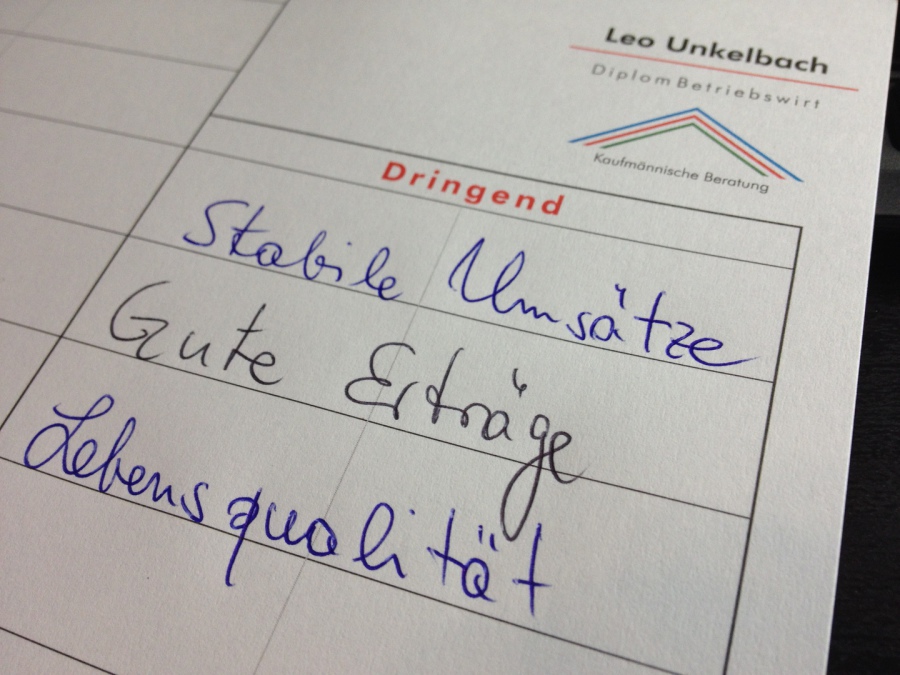 Leo Unkelbach
DiplomBetriebswirt
Kaufmännische Beratung
Dringend
Stabile Umsätze
Gute Erträge
Lebensqualität